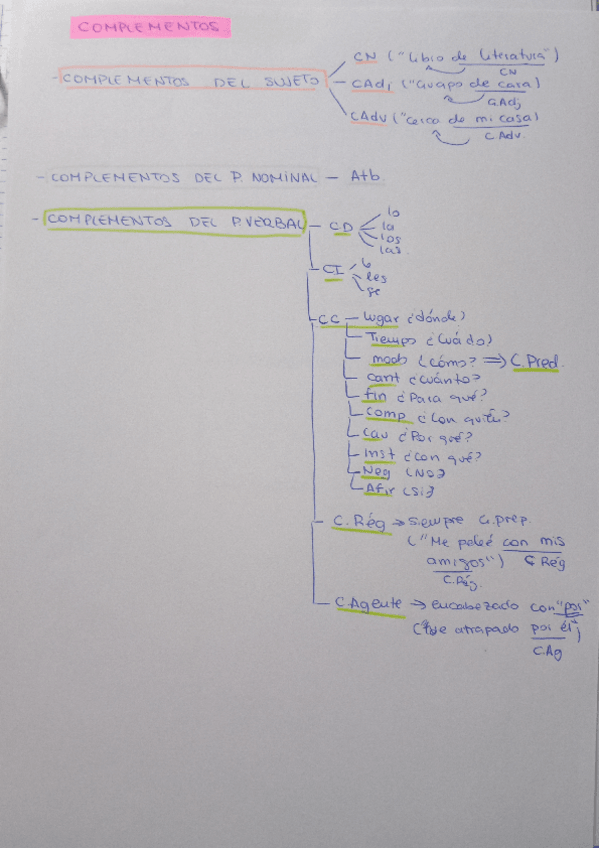 COMPLEMENTOS
- COMPLEMENTOS DEL SUJETO
CN ("Libro de Literatura")
CN
CAdj ("Guapo de cara)
C.Adj
CAdv ("Cerca de mi casa)
C.Adv.
- COMPLEMENTOS DEL P. NOMINAL - Atb.
- COMPLEMENTOS DEL P.VERBAL - CD
lo
la
los
las.
CI
le
les
se
CC - Lugar ¿dónde?
Tiempo ¿Cuádo?
modo ¿Cómo? ⇒ C.Pred.
cant ¿Cuánto?
fin ¿Para qué?
comp ¿Con quién?
Cau ¿Por qué?
inst ¿Con qué?
Neg (No)
Afir (Sí)
- C.Rég → siempre G.prep.
("Me peleé con mis
amigos") C Rég
C.Rég.
- C.Agente → encabezado con "por"
("fue atrapado por él")
C.Ag